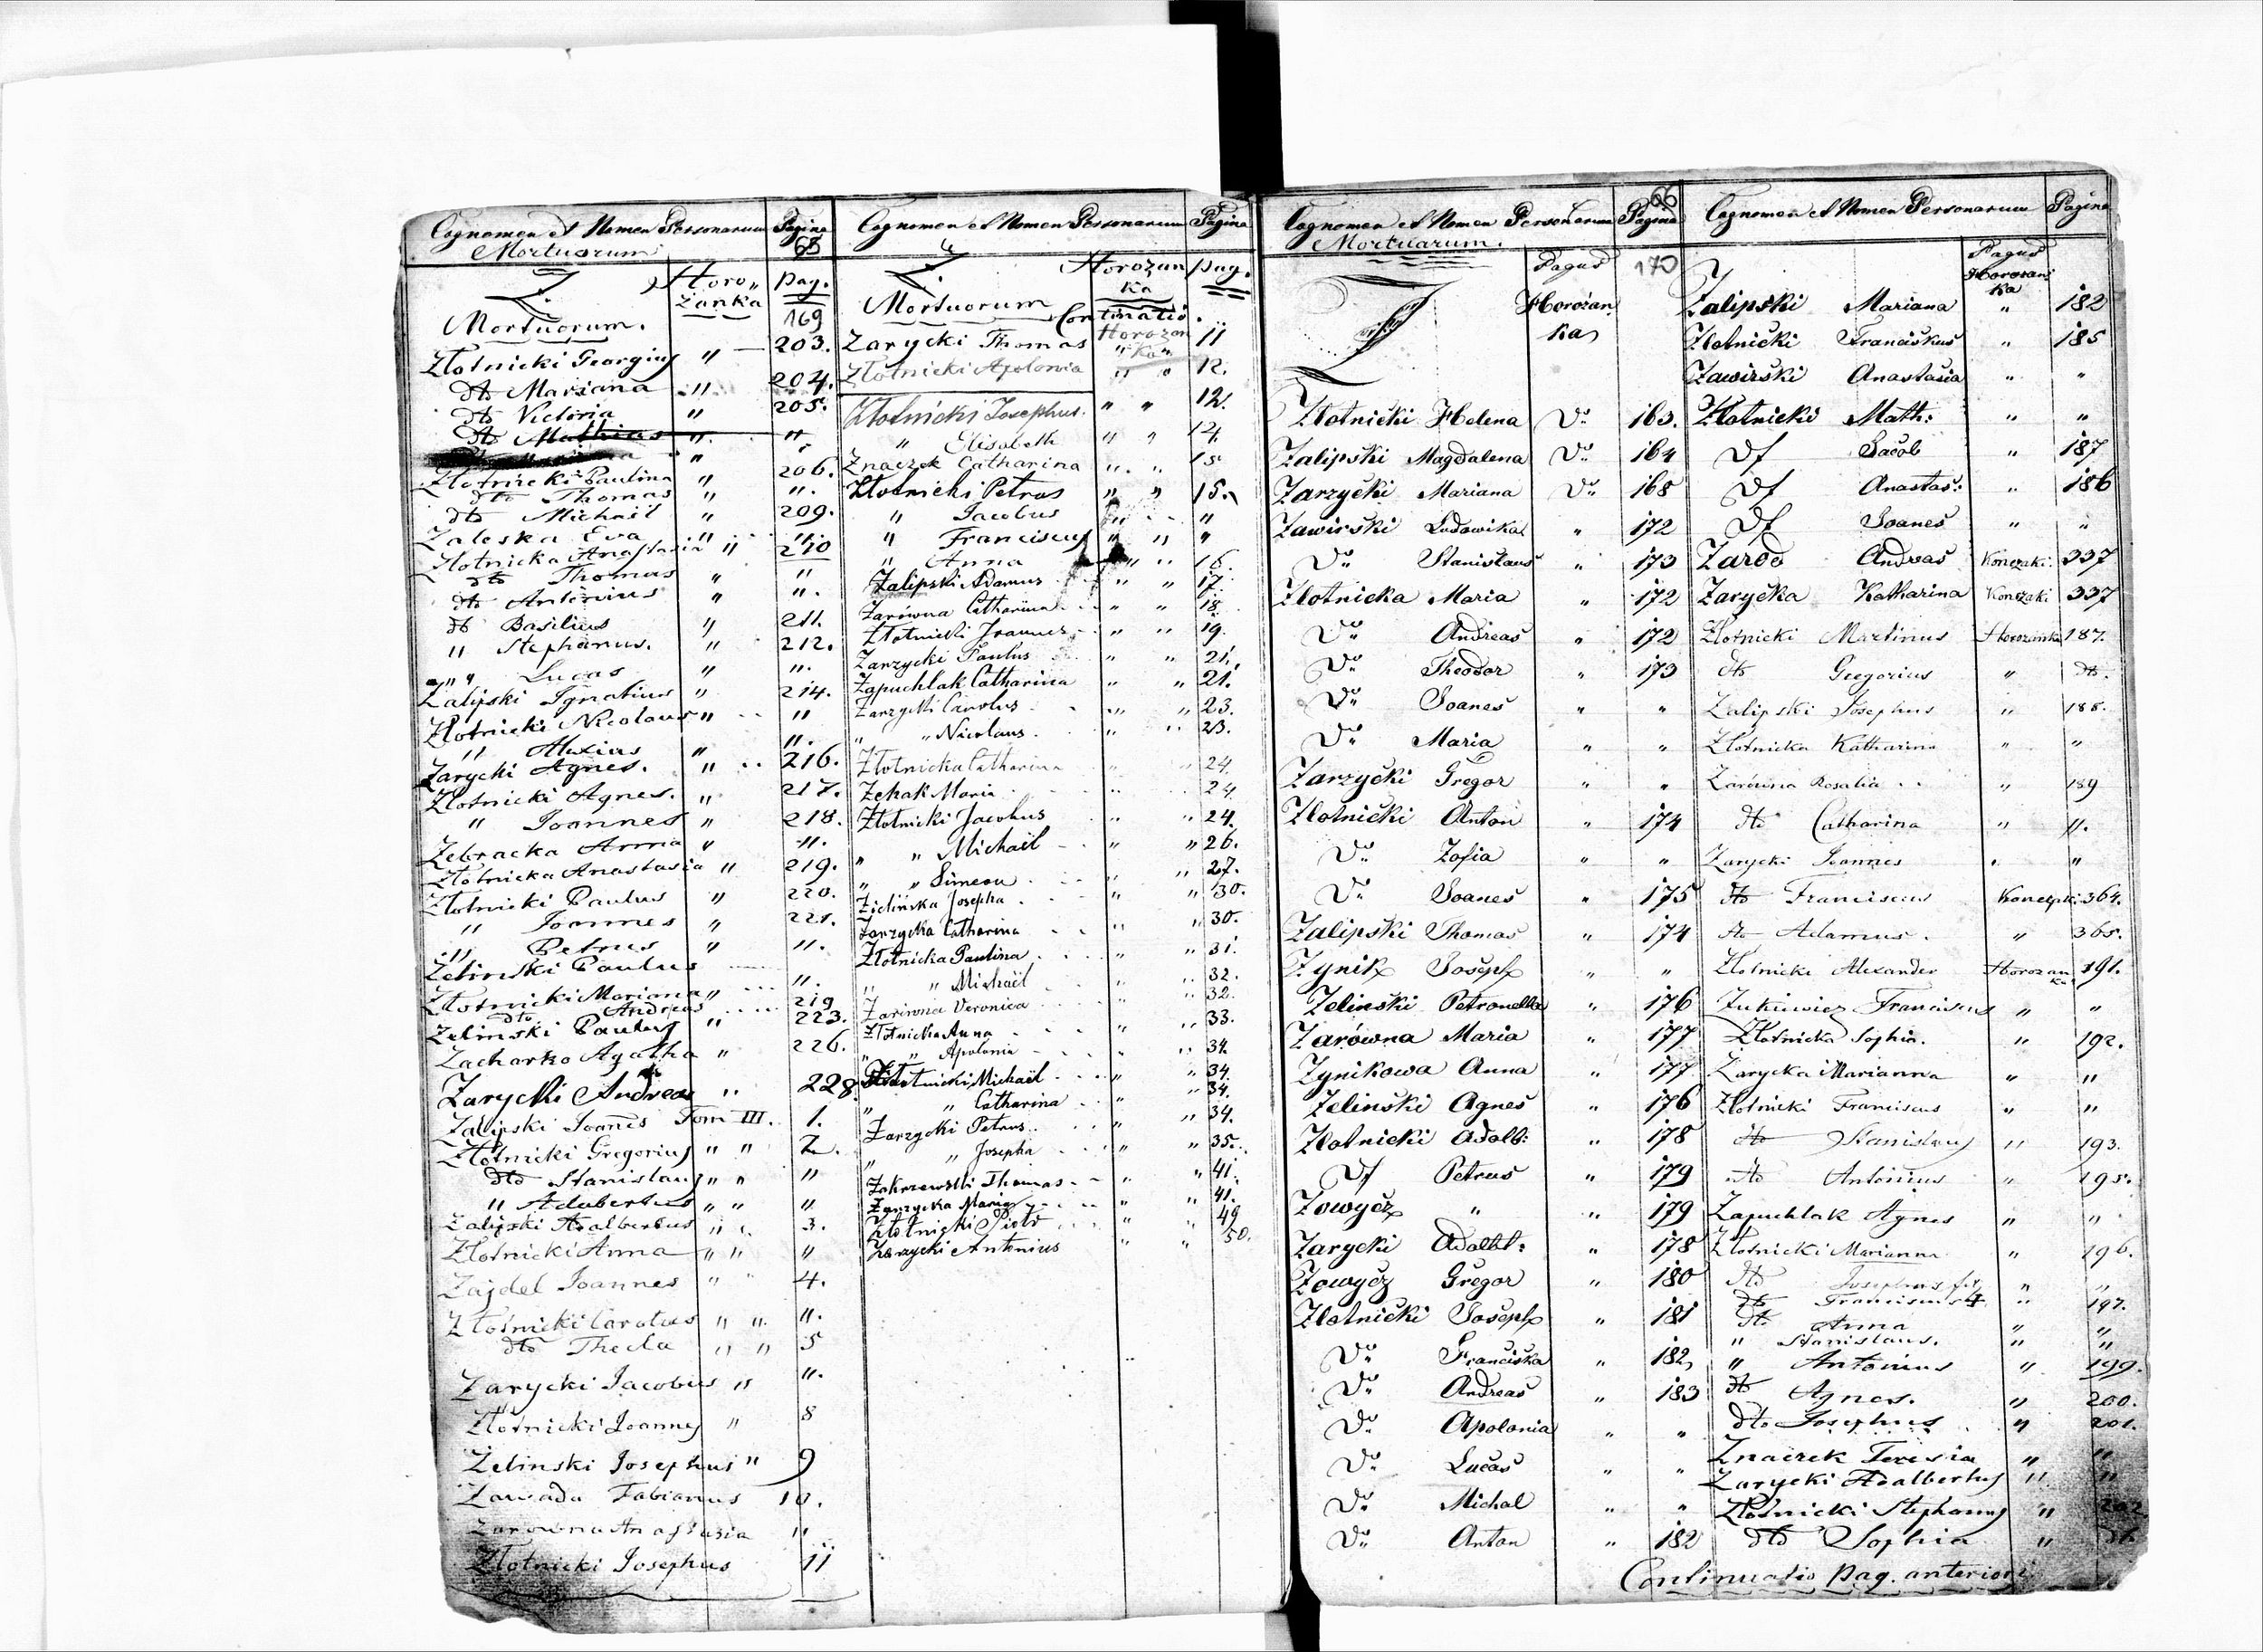 Cognomen et Nomen Personarum Pagina
Mortuorum 65
Z. Horo„ pag.
żanka
Mortuorum. 169
Złotnicki Georgius " 203.
dto Mariana " 204.
dto Victoria " 205.
dto Mathias " "
Złotnicki Paulina " 206.
dto Thomas " ".
dto Michaël " 209.
Zaleska Eva " "
Złotnicka Anastasia " 210
dto Thomas " "
dto Antonius " ".
dto Basilius " 211.
" Stephanus. " 212.
" Lucas " ".
Zalipski Ignatius " 214.
Złotnicki Nicolaus " "
" Alexius " ".
Zarycki Agnes. " 216.
Złotnicki Agnes. " 217.
" Joannes " 218.
Żebracka Anna " ".
Złotnicka Anastasia " 219.
Złotnicki Paulus " 220.
" Joannes " 221.
" Petrus " ".
Zelinski Paulus
Złotnicki Mariana " ".
dto Andreas 219
Zelinski Paulus " 223.
Zacharko Agatha " 226.
Zarycki Andreas " 228
Zalipski Joanes Tom III. 1.
Złotnicki Gregorius " " 2.
dto Stanislaus " " "
" Adalbertus " " "
Zalipski Adalbertus " " 3.
Złotnicki Anna " " "
Zajdel Joannes " " 4.
Złotnicki Carolus " " ".
dto Thecla " " 5
Zarycki Jacobus " ".
Złotnicki Joannes " 8
Zelinski Josephus " 9
Zawada Fabianus 10.
Zarowna Anastasia "
Złotnicki Josephus 11
Cognomen et Nomen Personarum Pagina
Z. Horożan pag.
ka
Mortuorum Continatio.
Zarycki Thomas Horożan 11
ka
Złotnicki Apolonia " " 12.
Złotnicki Josephus. " " 12.
" Elisabeth " " 14.
Znaczek Catharina " " 15
Złotnicki Petrus " " 15.
" Jacobus " "
" Franciscus " " "
" Anna " " 16.
Zalipski Adamus " " 17.
Zarówna Catharina " " 18
Złotnicki Joannes " " 19.
Zarzycki Paulus " " 21.
Zapuchlak Catharina " " 21.
Zarzycki Carolus " " 23.
" " Nicolaus " " 23.
Złotnicka Catharina " " 24.
Zekak Maria " " 24
Złotnicki Jacobus " " 24.
" " Michaël " " 26.
" " Simeon " " 27.
Zielińska Josepha " " 30.
Zarzycka Catharina " " 30.
Złotnicka Paulina " " 31.
" " Michaël " " 32.
Zarówna Veronica " " 32.
Złotnicka Anna " " 33.
" " Apolonia " " 34.
Złotnicki Michaël " " 34.
" " Catharina " " 34.
Zarzycki Petrus " " 34.
" " Josepha " 35.
Zakrzewski Thomas " " 41.
Zarzycka Maria " " 41.
Złotnicki Piotr " " 49
Zarzycki Antonius " " 50.
Cognomen et Nomen Personarum Pagina 66
Mortuarum.
Z Pagus 170
Horożan
ka
Złotnicki Helena Do 163.
Zalipski Magdalena Do 164
Zarzycki Mariana Do 168
Zawirski Ludowika " 172
Do Stanislaus " 173
Złotnicka Maria " 172
Do Andreas " 172
Do Theodor " 173
Do Joanes " "
Do Maria " "
Zarzycki Gregor " "
Złotnicki Anton " 174
Do Zofia " "
Do Joanes " 175
Zalipski Thomas " 174
Zynik Joseph " "
Zelinski Petronella " 176
Zarówna Maria " 177
Zynikowa Anna " 177
Zelinski Agnes " 176
Złotnicki Adalb: " 178
Df Petrus " 179
Zowycz " " 179
Zarycki Adalbt: " 178
Zowycz Gregor " 180
Złotnicki Joseph " 181
Do Franciska " 182
Do Andreas " 183
Do Apolonia " "
Do Lucas " "
Do Michal " "
Do Anton " 182
Cognomen et Nomen Personarum Pagina
Pagus
Horożan
ka
Zalipski Mariana " 182
Złotnicki Franciskus " 185
Zawirski Anastasia " "
Złotnicki Math: " "
Df Jacob " 187
Df Anastas: " 186
Df Joanes " "
Zarod Andreas Konczaki 337
Zarycka Katharina Konczaki 337
Złotnicki Martinus Horożanka 187.
dto Gregorius " dto.
Zalipski Josephus " 188.
Złotnicka Katharina " "
Zarówna Rosalia " 189
dto Catharina " ".
Zarycki Joannes " "
dto Franciscus 364.
dto Adamus. " 365.
Złotnicki Alexander Horożan 191.
ka
Żukiewicz Franciscus " "
Złotnicka Sophia. " 192.
Zarycka Marianna " "
Złotnicki Franciscus " "
dto Stanislaus " 193.
dto Antonius " 195.
Zapuchlak Agnes " "
Złotnicki Marianna " 196.
dto Josephus " "
dto Franciscus " 197.
dto Anna " "
" Stanislaus. " "
" Antonius " 199.
dto Agnes. " 200.
dto Josephus " 201.
Znaczek Teresia " "
Zarycki Adalbertus " "
Złotnicki Stephanus " 202
dto Sophia " dt.
Continuatio pag. anteriori